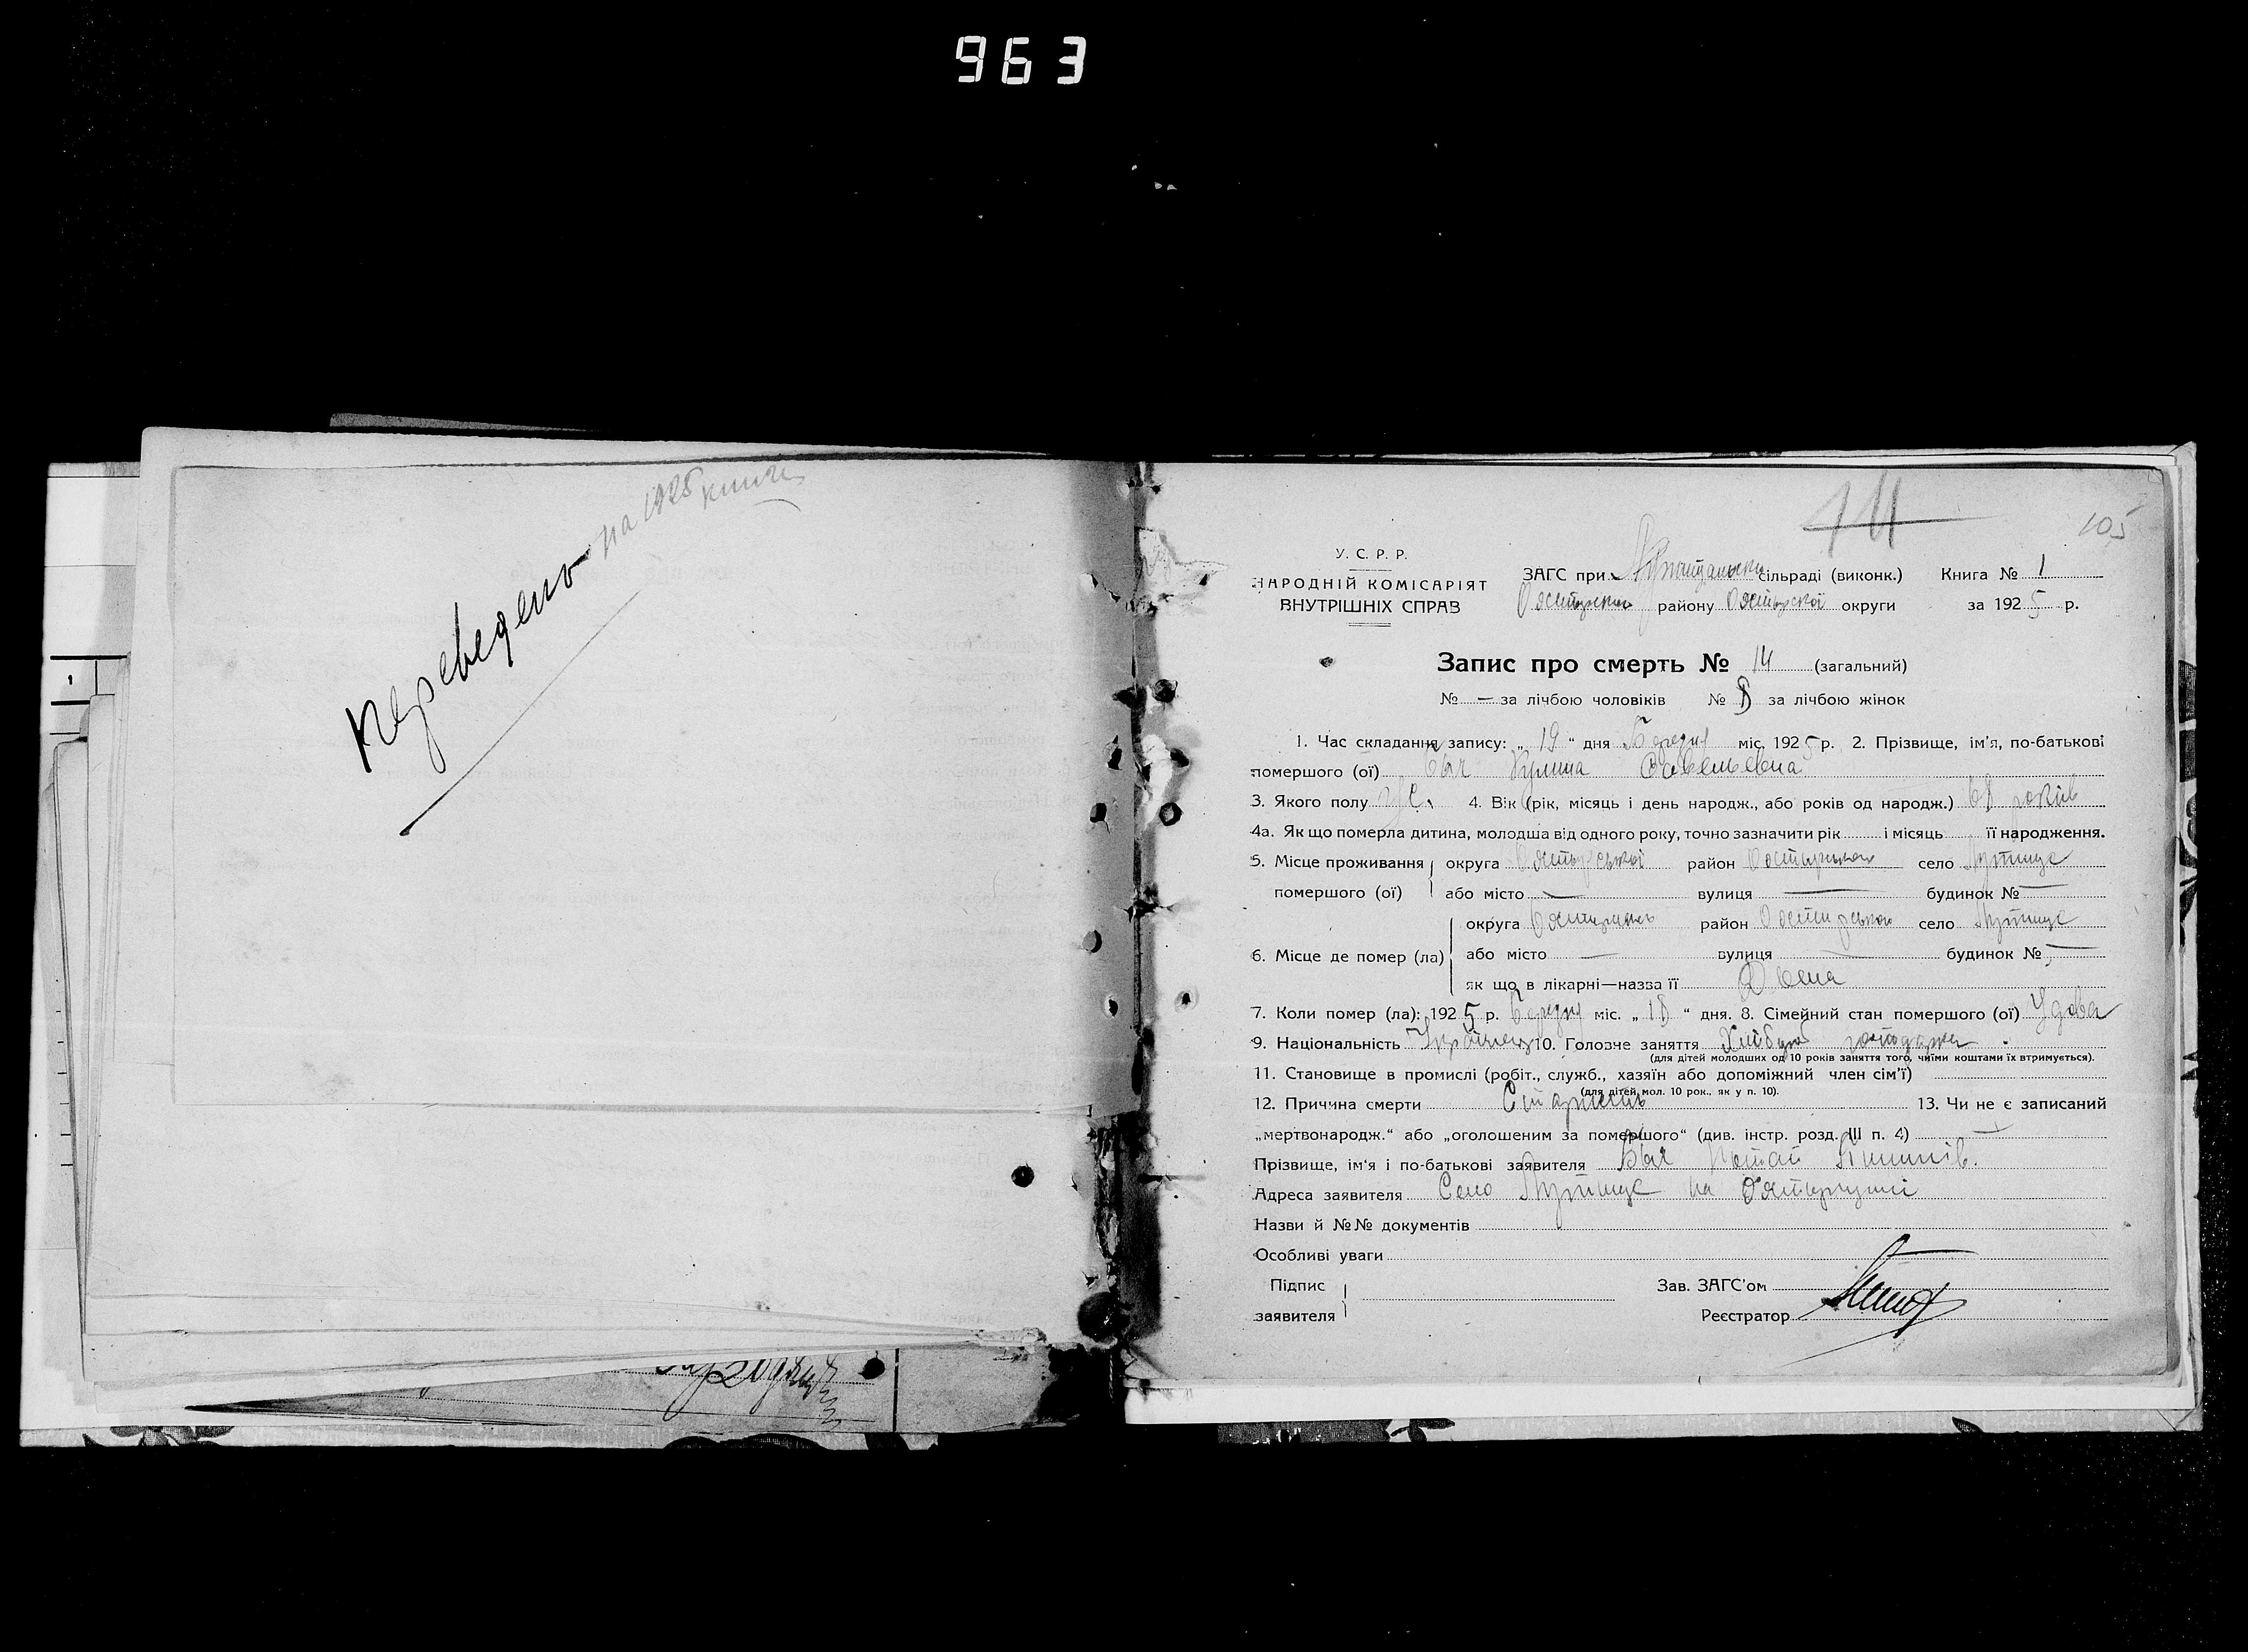 963
переведено на 1925 книги
105
У. С. Р. Р.
НАРОДНІЙ КОМІСАРІЯТ
ВНУТРІШНІХ СПРАВ
ЗАГС при сільраді (виконк.) Книга № 1
району Охтирської округи за 1925 р.
Запис про смерть № 14 (загальний)
№ — за лічбою чоловіків № 8 за лічбою жінок
1. Час складання запису: „ 19 “ дня міс. 1925 р. 2. Прізвище, ім'я, по-батькові
помершого (ої) Быч Савельевна
3. Якого полу Ж. 4. Вік (рік, місяць і день народж., або років од народж.) 68 років
4а. Як що померла дитина, молодша від одного року, точно зазначити рік і місяць її народження.
5. Місце проживання округа Охтирської район село Лутище
помершого (ої) або місто — вулиця — будинок № —
округа район село Лутище
6. Місце де помер (ла) або місто — вулиця — будинок № —
як що в лікарні—назва її Дома
7. Коли помер (ла): 1925 р. міс. „ 18 “ дня. 8. Сімейний стан помершого (ої) Удова
9. Національність 10. Головне заняття
(для дітей молодших од 10 років заняття того, чиїми коштами їх втримується).
11. Становище в промислі (робіт., служб., хазяїн або допоміжний член сім'ї)
(для дітей мол. 10 рок., як у п. 10).
12. Причина смерти Старість 13. Чи не є записаний
„мертвонародж.“ або „оголошеним за помершого“ (див. інстр. розд. III п. 4) —
Прізвище, ім'я і по-батькові заявителя Быч
Адреса заявителя Село Лутище на Охтирщині
Назви й №№ документів
Особливі уваги
Підпис Зав. ЗАГС'ом
заявителя Реєстратор